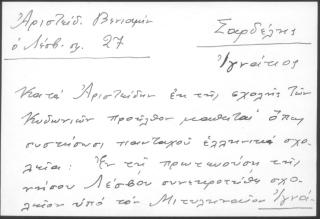 Ἀριστείδ. Βενιαμίν
ὁ Λέσβ. σ. 27
Σαρδέλης
Ἰγνάτιος
Κατὰ Ἀριστείδην ἐκ τῆς σχολῆς τῶν
Κυδωνιῶν προῆλθον μαθηταὶ ὅπως
συστήσωσι πανταχοῦ ἑλληνικὰ σχο-
λεῖα: Ἐν τῇ πρωτευούσῃ τῆς
νήσου Λέσβου συνεκροτήθη σχο-
λεῖον ὑπὸ τοῦ Μιτυληναίου Ἰγνα-